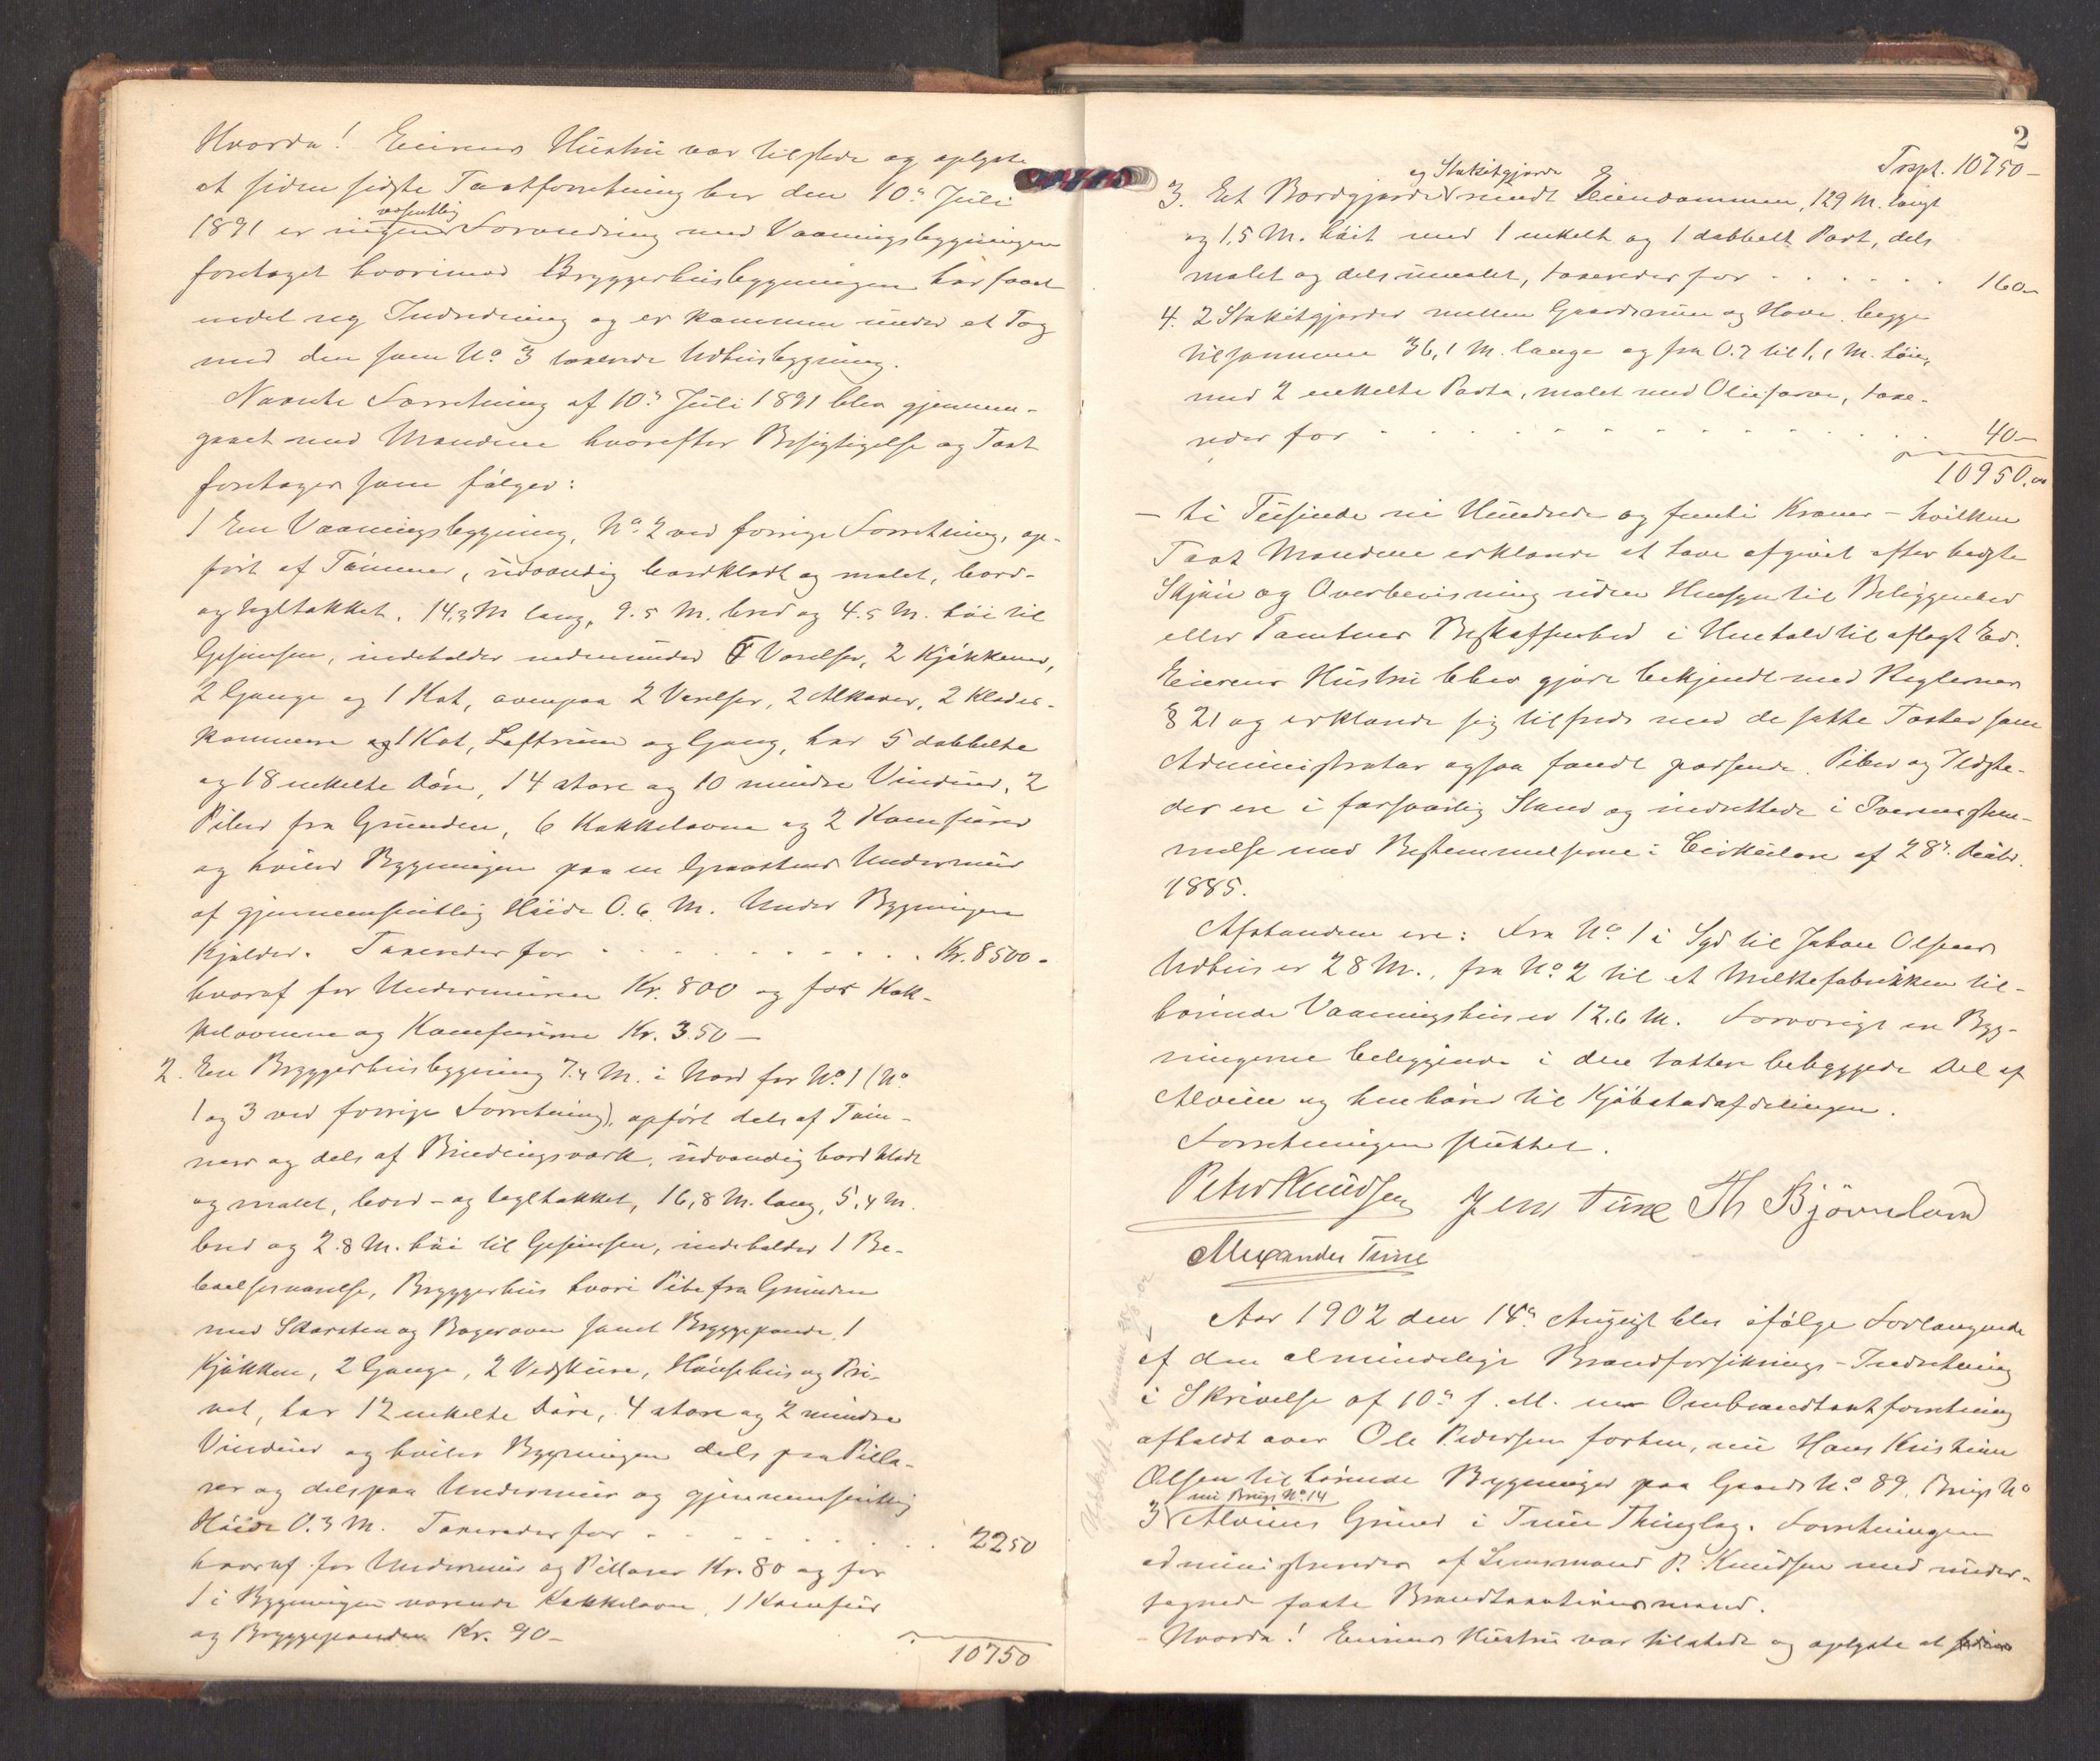 Hvorda! Eierens Hustru var tilstede og oplyste
at siden sidste Taxtforretning her den 10de Juli
1891 er ingen væsentlig Forandring med Vaaningsbygningen
foretaget hvorimod Bryggerhusbygningen har faaet
endel ny Indredning og er kommen under et Tag
med den som No 3 taxerede Udhusbygning.
Nævnte Forretning af 10de Juli 1891 blev gjennem-
gaaet med Mændene hvorefter Besigtigelse og Taxt
foretoges som følger:
1 En Vaaningsbygning, No 2 ved forrige Forretning, op-
ført af Tømmer, udvendig bordklædt og malet, bord-
og tegltækket, 14,3 M lang, 9.5 M. bred og 4.5 M. høi til
Gesimsen, indeholder nedenunder Værelser, 2 Kjøkkener,
2 Gange og 1 Kot, ovenpaa 2 Værelser, 2 Alkover, 2 Klædes-
kommere og 1 Kot, Loftsrum og Gang, har 5 dobbelte
og 18 enkelte Døre, 14 store og 10 mindre Vinduer, 2
Piber fra Grunden, 6 Kakkelovne og 2 Komfurer
og hviler Bygningen paa en Graastens Undermur
af gjennemsnitlig Høide 0.6 M. Under Bygningen
Kjælder. Taxeredes for . . . . . . . . . Kr. 8500-
hvoraf for Undermuren Kr. 800 og for Kak-
kelovnene og Komfurerne Kr. 350 —
2. En Bryggerhusbygning 7.4 M. i Nord for No 1 (No
1 og 3 ved forrige Forretning), opført dels af Tøm-
mer og dels af Bindingsværk, udvendig bordklædt
og malet, bord- og tegltækket, 16,8 M. lang, 5.4 M.
bred og 2.8 M. høi til Gesimsen, indeholder 1 Be-
boelsesværelse, Bryggerhus hvori Pibe fra Grunden
med Skorsten og Bagerovn samt Bryggepande, 1
Kjøkken, 2 Gange, 2 Vedskure, Hønsehus og Pri-
vet, har 12 enkelte Døre, 4 store og 2 mindre
Vinduer og hviler Bygningen dels paa Pilla-
rer og dels paa Undermur og gjennemsnitlig
Høide 0.3 M. Taxeredes for . . . . . . . 2250
hvoraf for Undermur og Pillarer Kr. 80 og for
1 i Bygningen værende Kakkelovn, 1 Komfur
og Bryggepanden Kr. 90 —
10750
2
Trspt. 10750 —
3. Et Bordgjærde og Stakitgjærde rundt Eiendommen, 129 M. langt
og 1,5 M. høit med 1 enkelt og 1 dobbelt Port, dels
malet og dels umalet, taxeredes for . . . . . . 160 —
4. 2 Stakitgjærder mellem Gaardsrum og Have, begge
tilsammen 36,1 M. lange og fra 0.7 til 1,1 M. høie,
med 2 enkelte Porte, malet med Oliefarve, taxe-
redes for . . . . . . . . . . . . . . 40 —
10950.00
— ti Tusinde ni Hundrede og femti Kroner — hvilken
Taxt Mændene erklærede at have afgivet efter bedste
Skjøn og Overbevisning uden Hensyn til Beliggenhed
eller Tomtens Beskaffenhed i Henhold til aflagt Ed.
Eierens Hustru blev gjort bekjendt med Reglernes
§ 21 og erklærede sig tilfreds med de satte Taxter som
Administrator ogsaa fandt passende. Piber og Ildste-
der ere i forsvarlig Stand og indrettede i Overensstem-
melse med Bestemmelserne i Cirkulære af 28de Decbr.
1885.
Afstandene ere: Fra No 1 i Syd til Johan Olsens
Udhus er 28 M., fra No 2 til et Melkefabrikken til-
hørende Vaaningshus er 12.6 M. Forøvrigt er Byg-
ningerne beliggende i den tættere bebyggede Del af
Alvim og henhører til Kjøbstadafdelingen.
Forretningen sluttet.
Peter Knudsen Jens Tune Th Bjørneland
Alexander Tune
Aar 1902 den 14de August blev ifølge Forlangende
af den almindelige Brandforsikrings-Indretning
i Skrivelse af 10de f. M. Ombrandtaxtforretning
afholdt over Ole Pedersen forhen, nu Hans Kristian
Olsen tilhørende Bygninger paa Gaards No 89, Brugs No
3 nu Brugs No. 14 Alvims Grund i Tune Thinglag. Forretningen
administreredes af Lensmand P. Knudsen med under-
tegnede faste Brandtaxationsmænd.
Hvorda! Eierens Hustru var tilstede og oplyste at